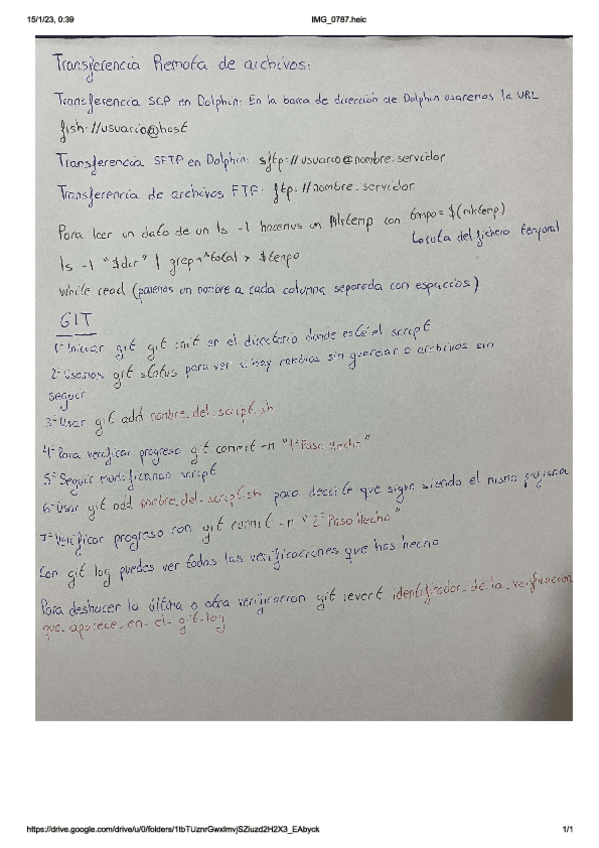 15/1/23, 0:39
IMG_0787.heic
Transferencia Remota de archivos:
Transferencia SCP en Dolphin: En la barra de dirección de Dolphin usaremos la URL
fish://usuario@host
Transferencia SFTP en Dolphin: sftp://usuario@nombre.servidor
Transferencia de archivos FTP: ftp://nombre.servidor
Para leer un dato de un ls -l hacemos un Mktemp con tmpo=$(mktemp)
La ruta del fichero temporal
ls -l "$dir" | grep total > $tempo
While read (ponemos un nombre a cada columna separada con espacios)
GIT
1º Iniciar git git init en el directorio donde esté el script
2º Usamos git status para ver si hay cambios sin guardar o archivos sin
seguir
3º Usar git add nombre_del_script.sh
4º Para verificar progreso git commit -m "1º Paso Hecho"
5º Seguir modificando script
6º Usar git add nombre_del_script.sh para decirle que sigue siendo el mismo programa
7º Verificar progreso con git commit -m "2º Paso Hecho"
Con git log puedes ver todas las verificaciones que has hecho
Para deshacer la última o otra verificación git revert identificador_de_la_verificacion
que_aparece_en_el_git_log
https://drive.google.com/drive/u/0/folders/1tbTUznrGwxlmvjSZiuzd2H2X3_EAbyck
1/1